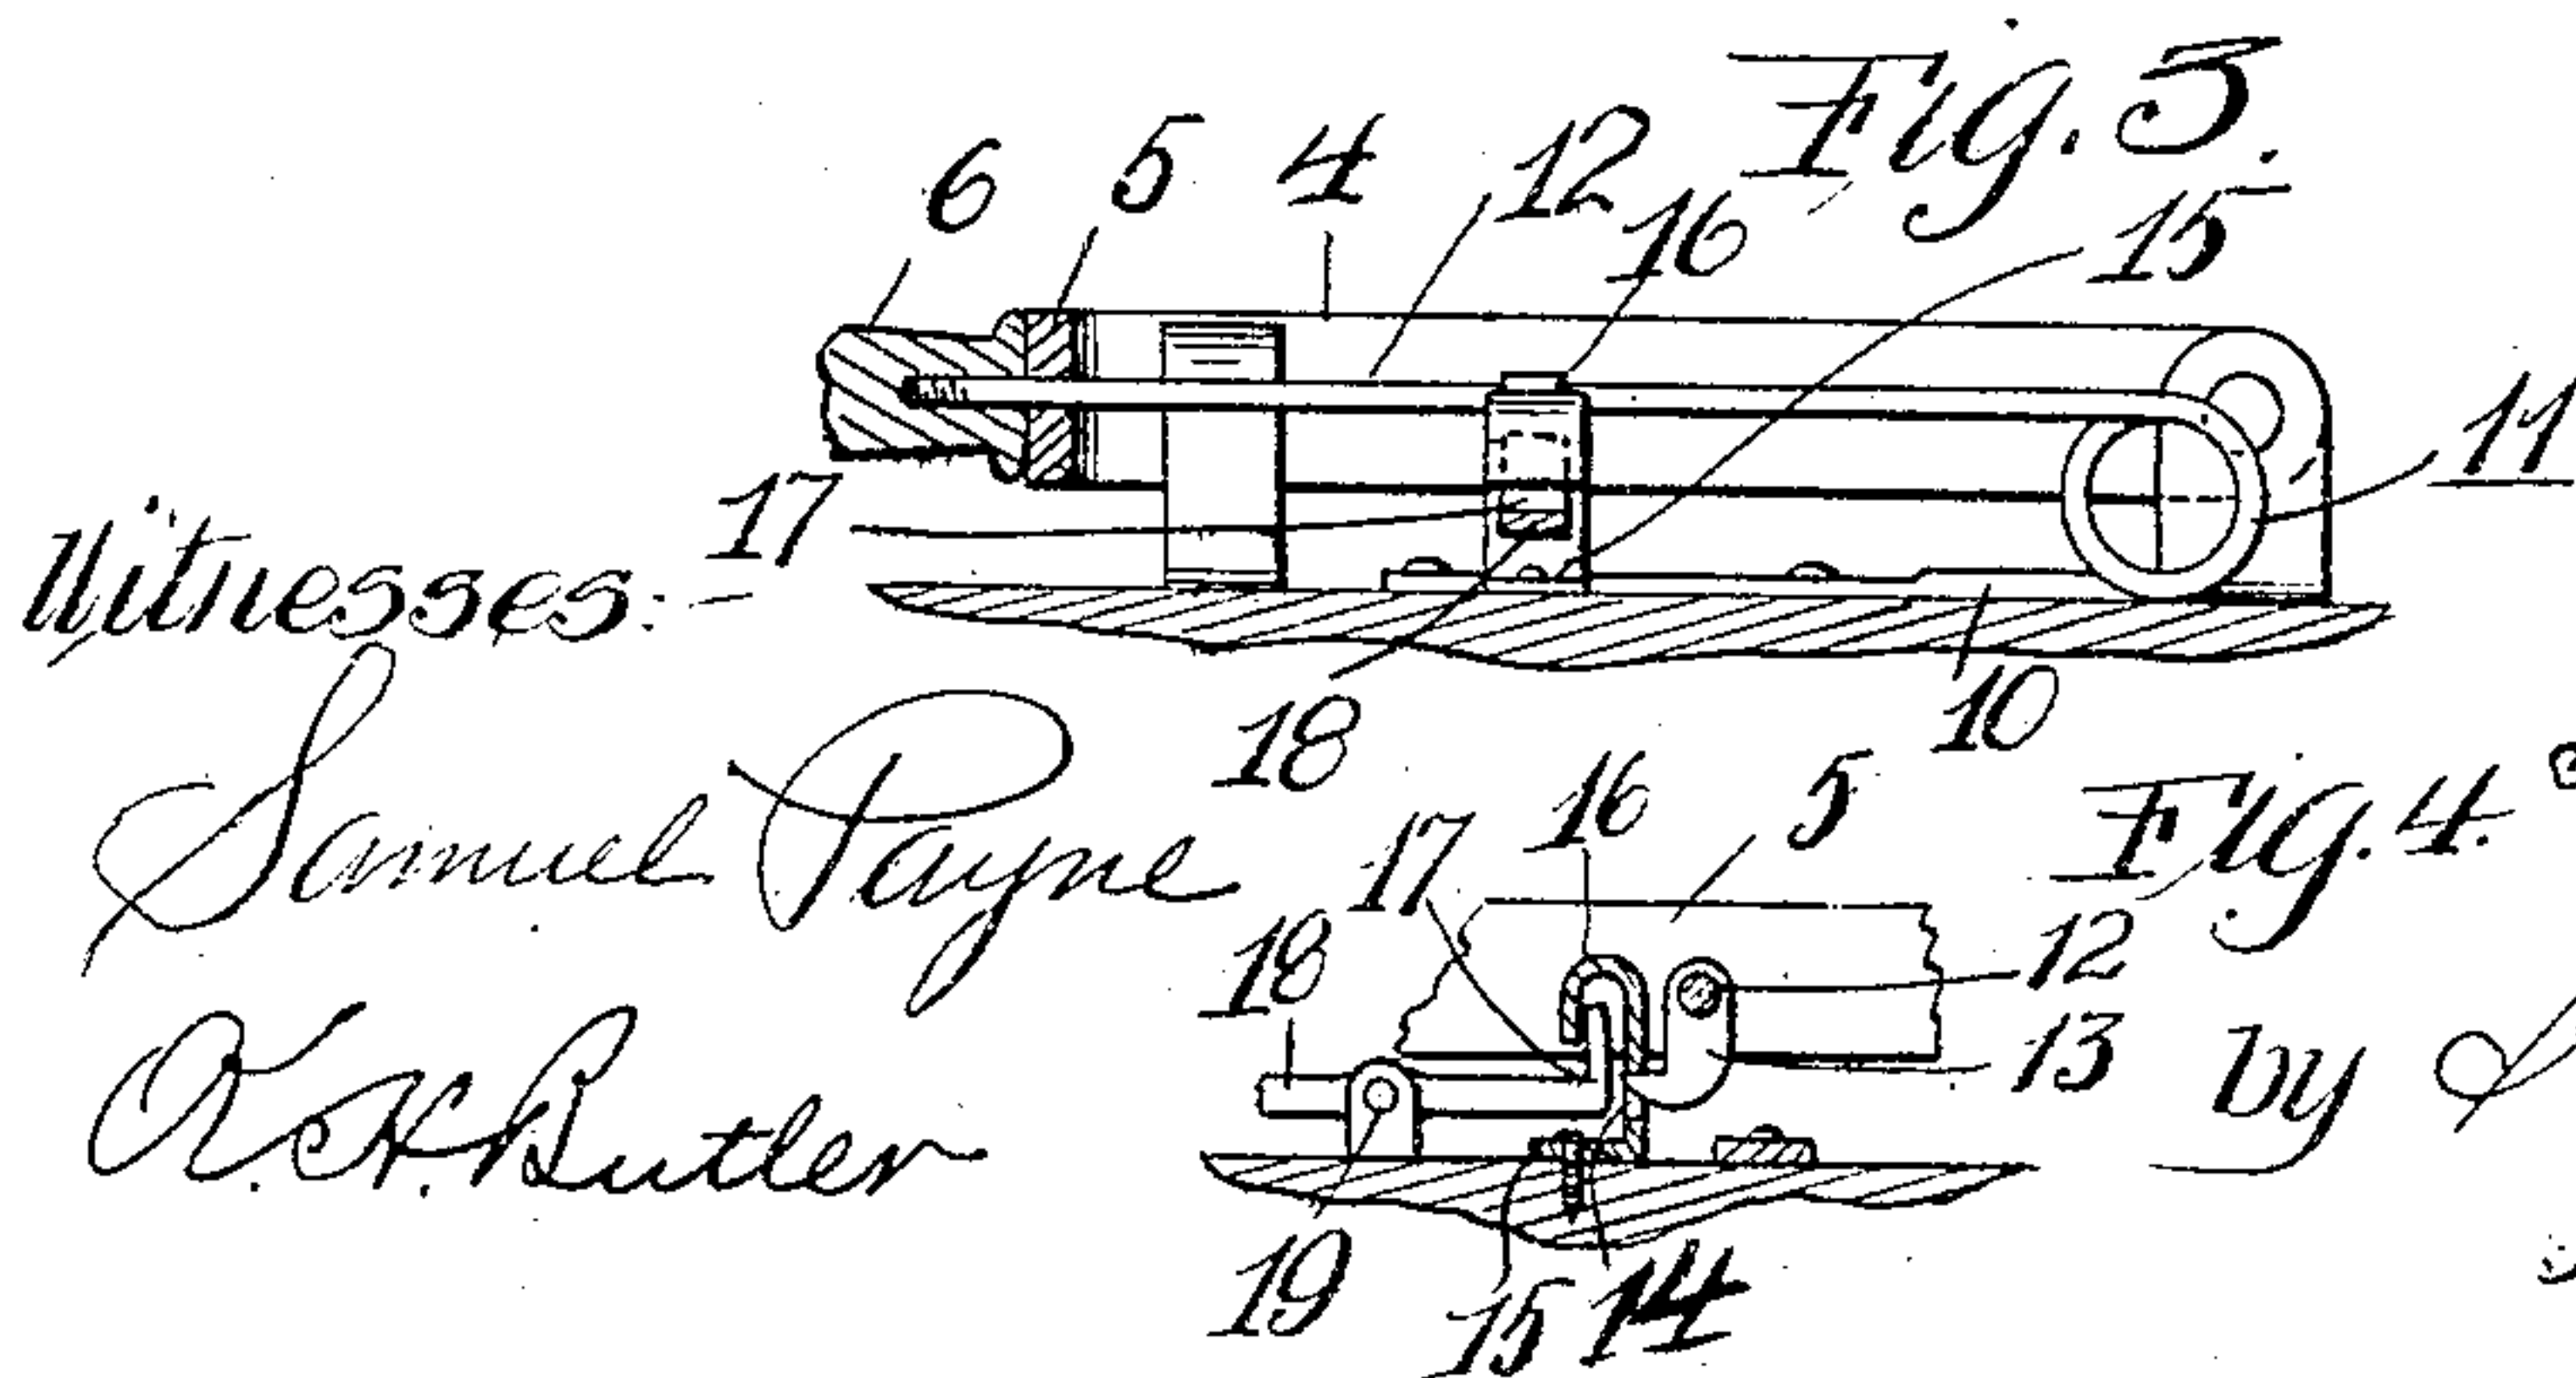 Fig. 3.
6 5 4 12 16 15
11
17
18 10
Witnesses:
Samuel Payne
K. H. Butler
Fig. 4.
16 5
17
18 12
13
19 15 14
by